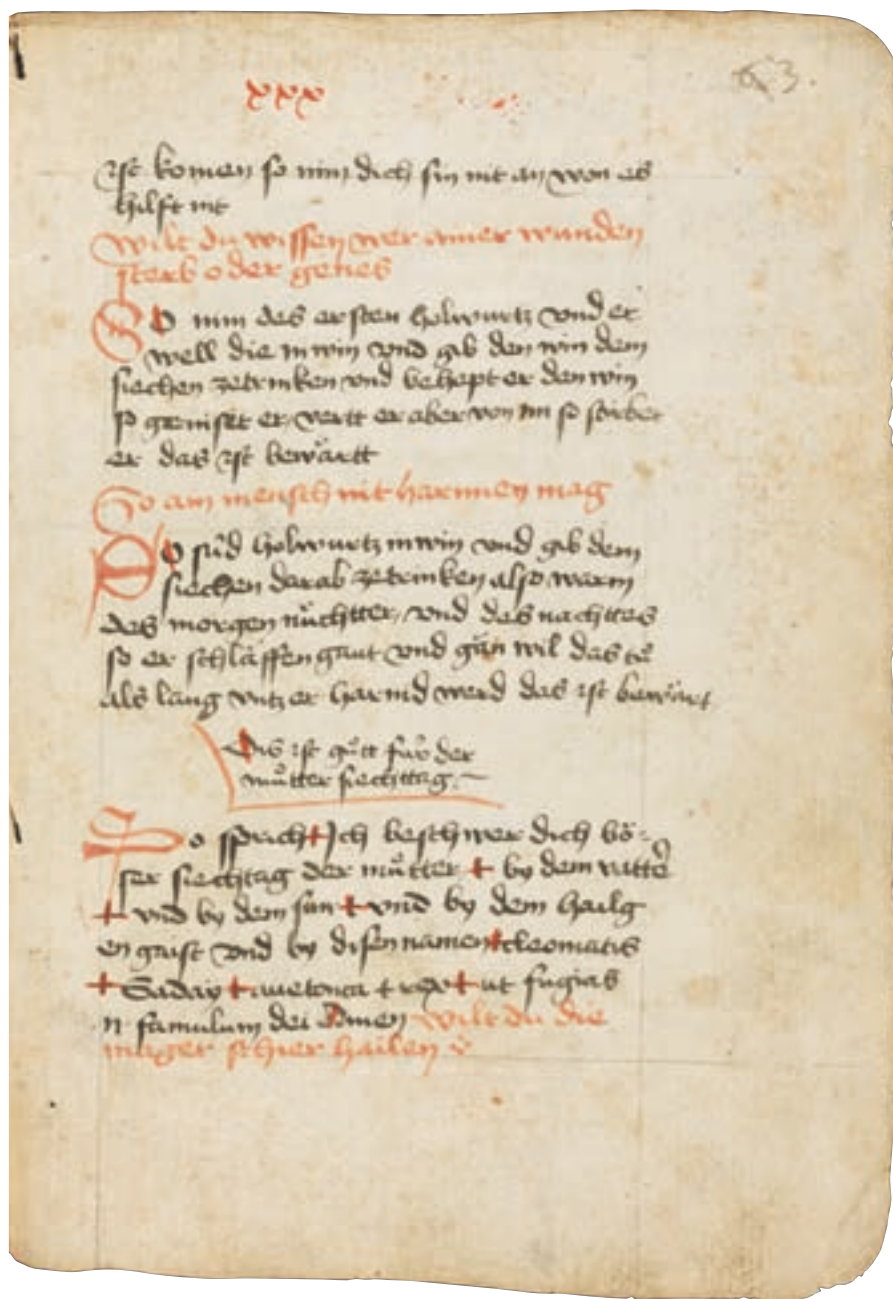 xxx
63.
ist komen so nim dich sin nit an won es
hilft nit
wilt du wissen wer ainer wunden
sterb oder genes
So nim des ersten holwurtz vnd er
well die in win vnd gib den win dem
siechen ze trinken vnd behept er den win
so geniset er, vertt er aber von im so stirbet
er das ist bewärtt
So ain mensch nit harnnen mag
So sùd holwurtz in win vnd gib dem
siechen darab ze trinken also warm
des morgen nüchtter, vnd des nachttes
so er schläffen gaut vnd gùn wil das tů
als lang vntz er harnd werd das ist bewärt
Dis ist gůtt für der
můtter siechttag
So sprich + Ich beschwer dich bö-
ser siechttag der můtter + by dem vatter
+ vnd by dem sun + vnd by dem hailg
en gaist vnd by disen namen + cleomatis
+ Saday + + rex + ut fugias
n famulum dei Amen wilt du die
mager schier hailen